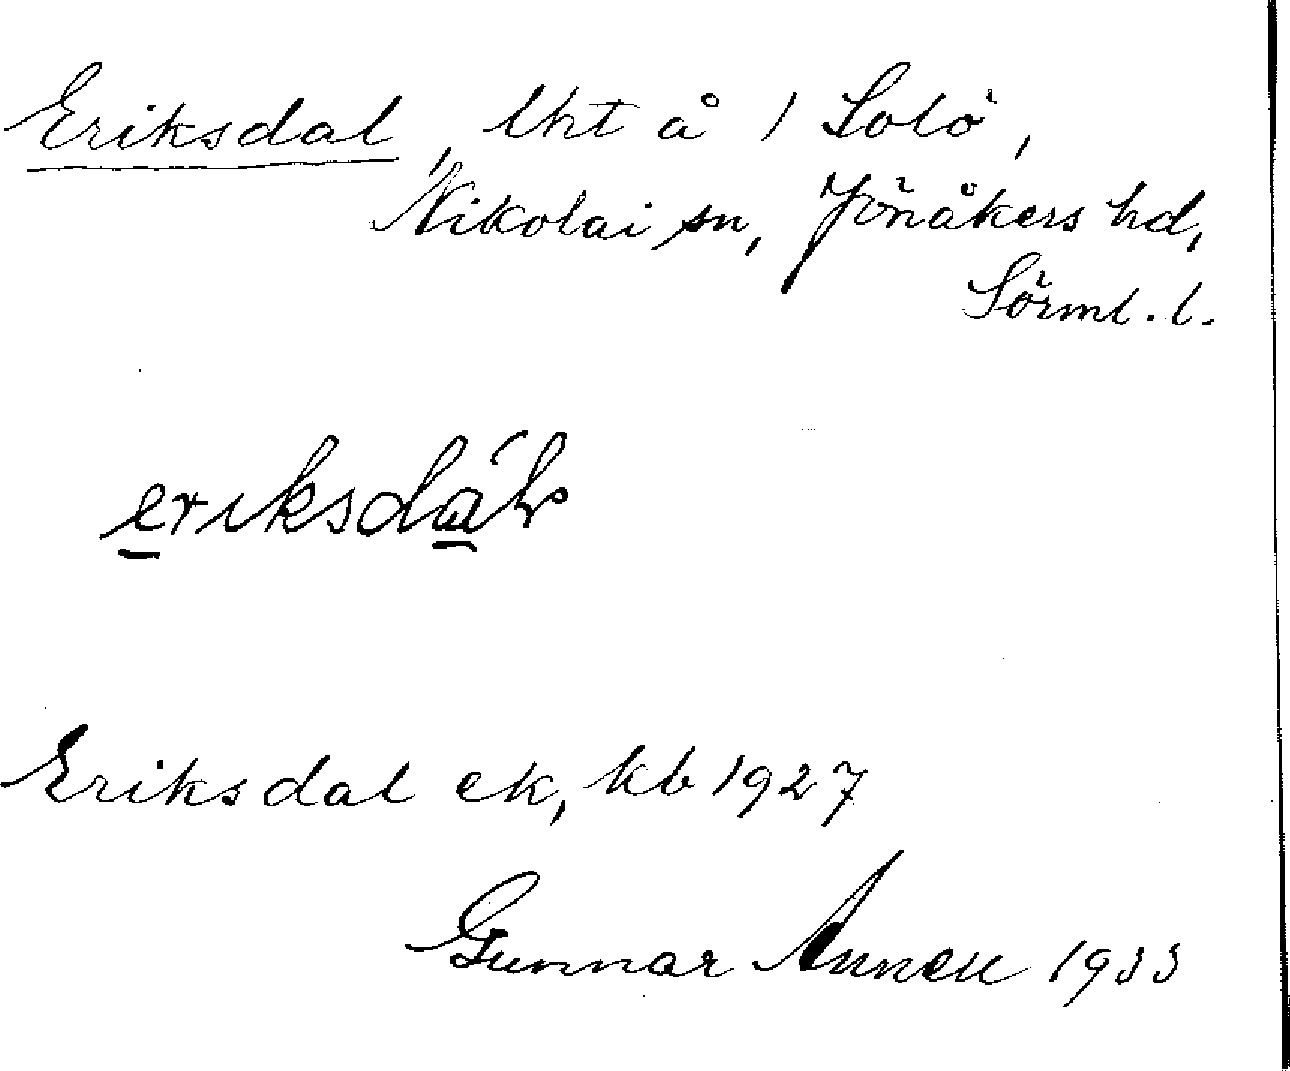 Eriksdal, lht å 1 Solö,
Nikolai sn, Jönåkers hd,
Sörml. l.
eriksdál
Eriksdal ek, kb 1927
Gunnar 1933